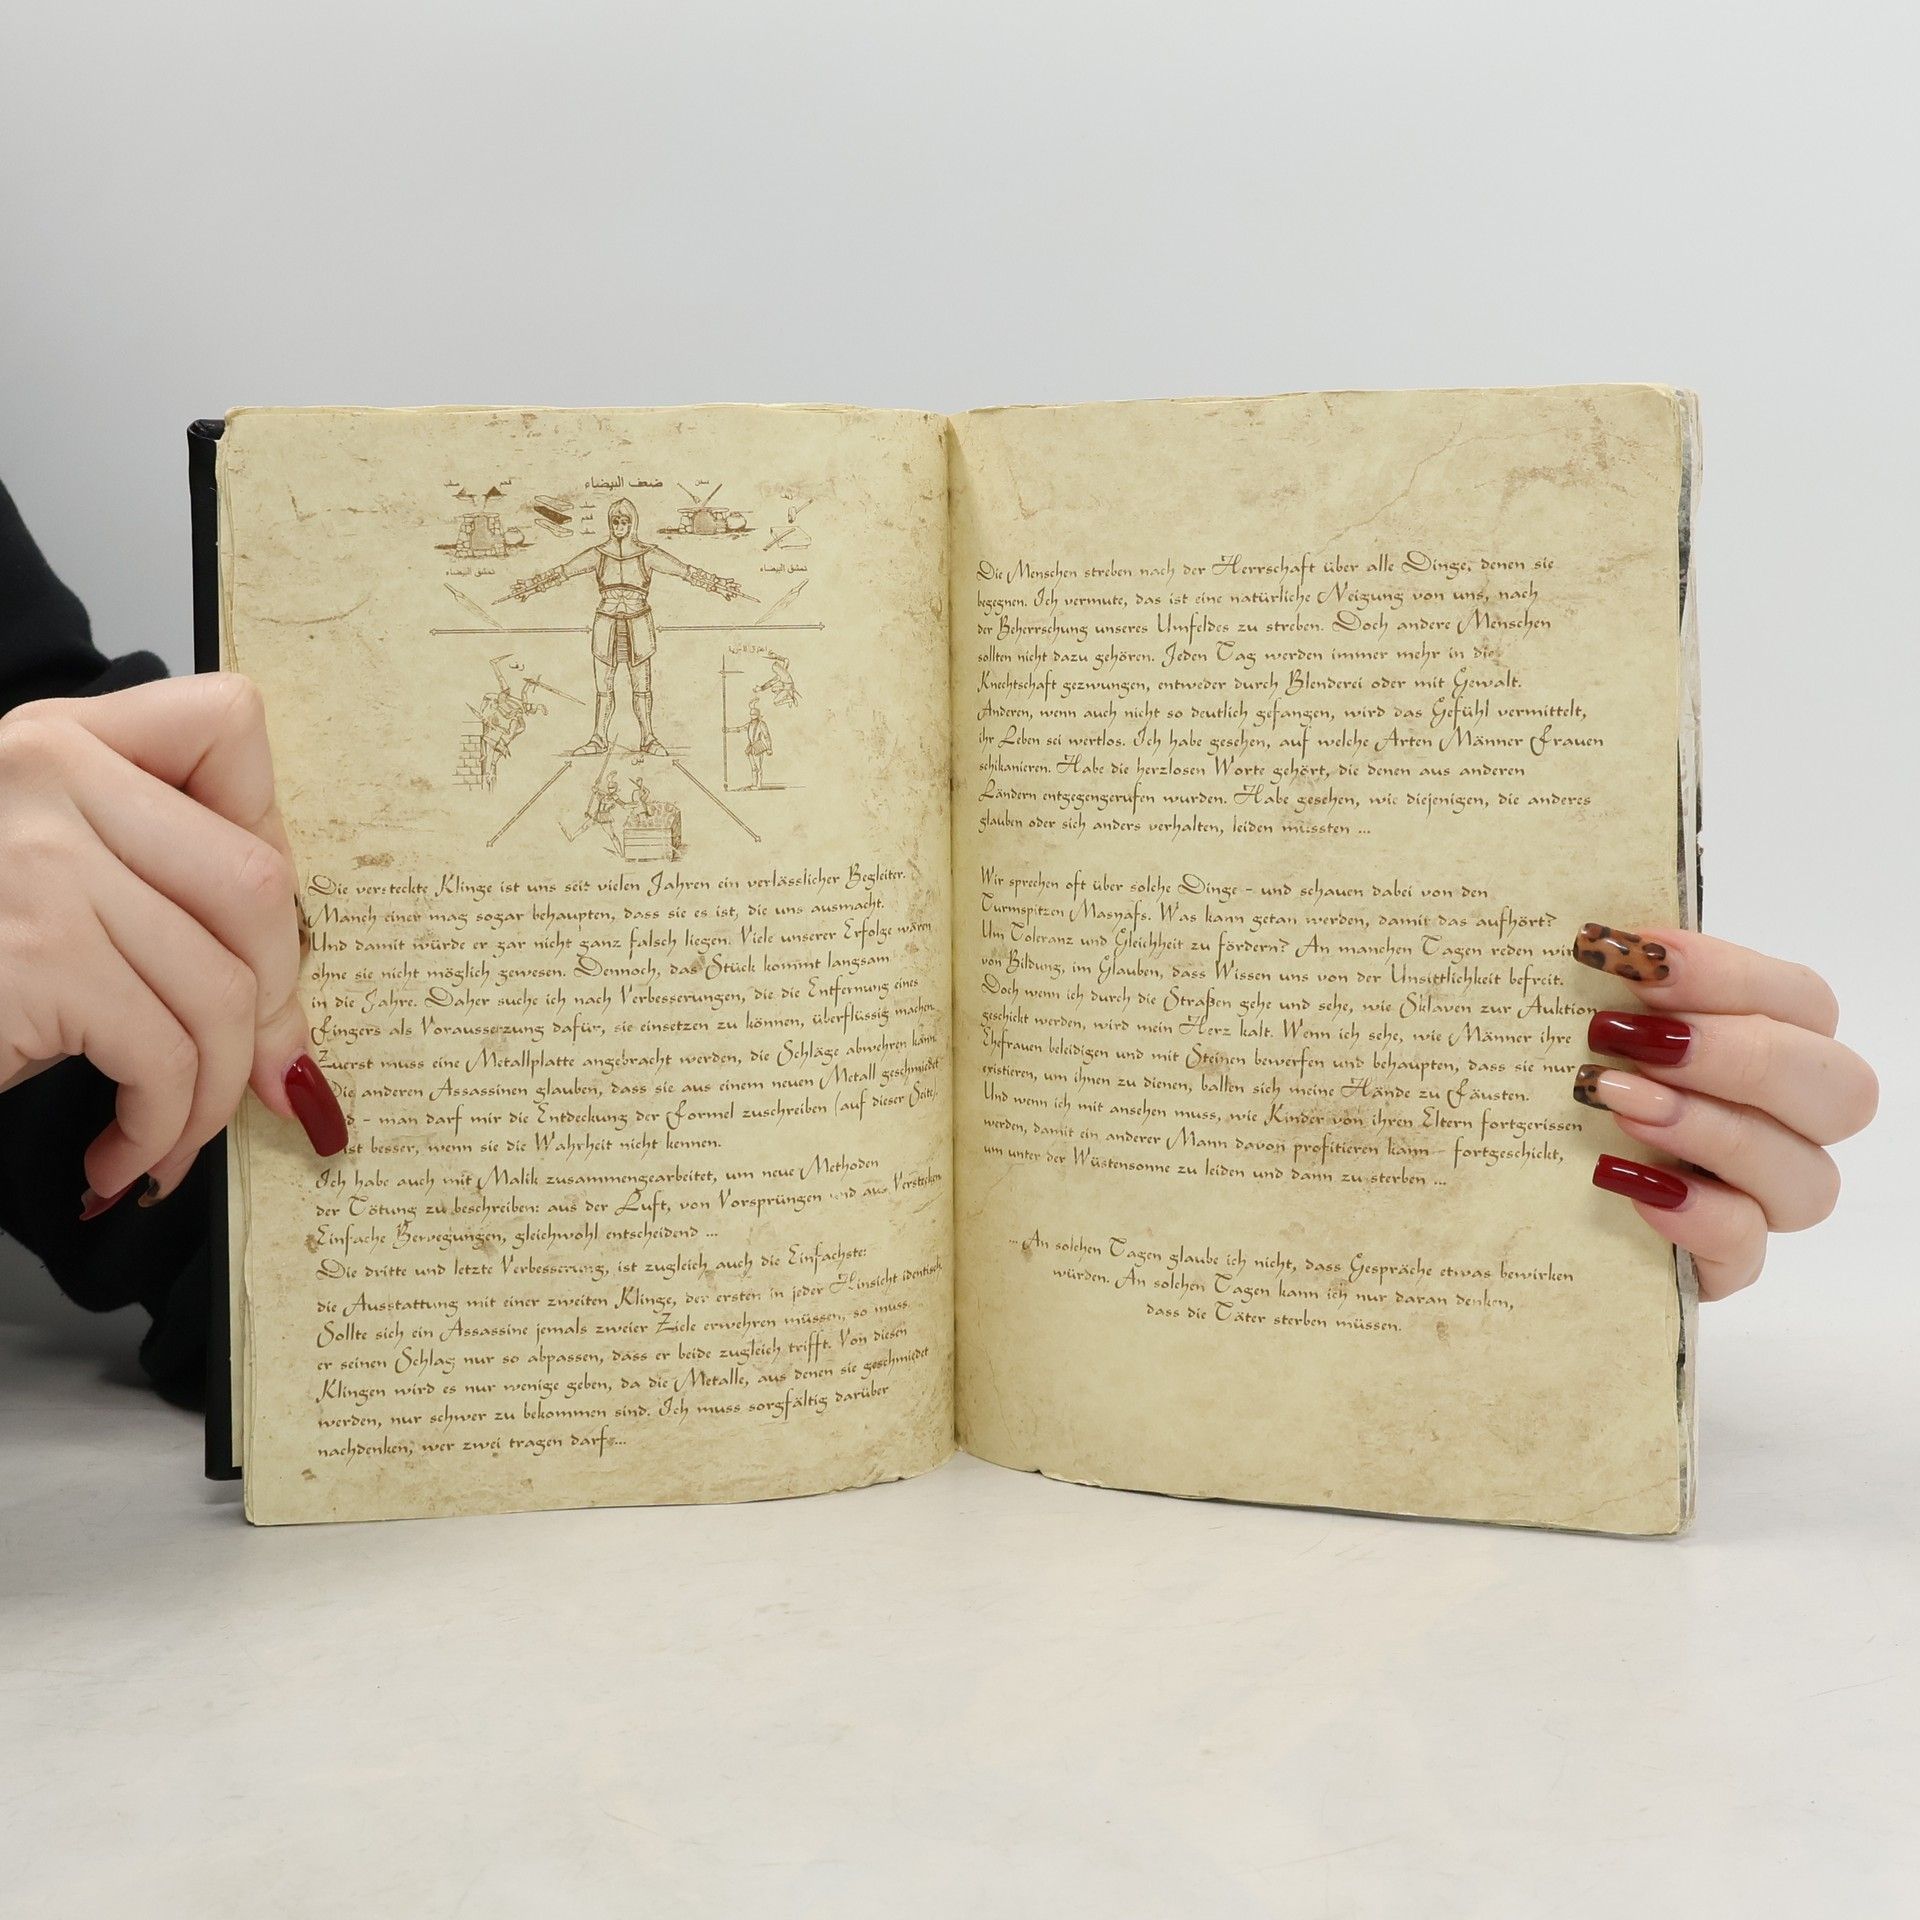 ضعف البيضاء
Die versteckte Klinge ist uns seit vielen Jahren ein verlässlicher Begleiter.
Manch einer mag sogar behaupten, dass sie es ist, die uns ausmacht.
Und damit würde er gar nicht ganz falsch liegen. Viele unserer Erfolge wären
ohne sie nicht möglich gewesen. Dennoch, das Stück kommt langsam
in die Jahre. Daher suche ich nach Verbesserungen, die die Entfernung eines
Fingers als Voraussetzung dafür, sie einsetzen zu können, überflüssig machen.
Zuerst muss eine Metallplatte angebracht werden, die Schläge abwehren kann.
Die anderen Assassinen glauben, dass sie aus einem neuen Metall geschmiedet
– man darf mir die Entdeckung der Formel zuschreiben (auf dieser Seite).
ist besser, wenn sie die Wahrheit nicht kennen.
Ich habe auch mit Malik zusammengearbeitet, um neue Methoden
der Tötung zu beschreiben: aus der Luft, von Vorsprüngen und aus Verstecken
Einfache Bewegungen, gleichwohl entscheidend ...
Die dritte und letzte Verbesserung, ist zugleich auch die Einfachste:
die Ausstattung mit einer zweiten Klinge, der ersten in jeder Hinsicht identisch.
Sollte sich ein Assassine jemals zweier Ziele erwehren müssen, so muss
er seinen Schlag nur so abpassen, dass er beide zugleich trifft. Von diesen
Klingen wird es nur wenige geben, da die Metalle, aus denen sie geschmiedet
werden, nur schwer zu bekommen sind. Ich muss sorgfältig darüber
nachdenken, wer zwei tragen darf ...
Die Menschen streben nach der Herrschaft über alle Dinge, denen sie
begegnen. Ich vermute, das ist eine natürliche Neigung von uns, nach
der Beherrschung unseres Umfeldes zu streben. Doch andere Menschen
sollten nicht dazu gehören. Jeden Tag werden immer mehr in die
Knechtschaft gezwungen, entweder durch Blenderei oder mit Gewalt.
Anderen, wenn auch nicht so deutlich gefangen, wird das Gefühl vermittelt,
ihr Leben sei wertlos. Ich habe gesehen, auf welche Arten Männer Frauen
schikanieren. Habe die herzlosen Worte gehört, die denen aus anderen
Ländern entgegengerufen wurden. Habe gesehen, wie diejenigen, die anderes
glauben oder sich anders verhalten, leiden müssten ...
Wir sprechen oft über solche Dinge – und schauen dabei von den
Turmspitzen Masyafs. Was kann getan werden, damit das aufhört?
Um Toleranz und Gleichheit zu fördern? An manchen Tagen reden wir
von Bildung, im Glauben, dass Wissen uns von der Unsittlichkeit befreit.
Doch wenn ich durch die Straßen gehe und sehe, wie Sklaven zur Auktion
geschickt werden, wird mein Herz kalt. Wenn ich sehe, wie Männer ihre
Ehefrauen beleidigen und mit Steinen bewerfen und behaupten, dass sie nur
existieren, um ihnen zu dienen, ballen sich meine Hände zu Fäusten.
Und wenn ich mit ansehen muss, wie Kinder von ihren Eltern fortgerissen
werden, damit ein anderer Mann davon profitieren kann – fortgeschickt,
um unter der Wüstensonne zu leiden und dann zu sterben ...
... An solchen Tagen glaube ich nicht, dass Gespräche etwas bewirken
würden. An solchen Tagen kann ich nur daran denken,
dass die Täter sterben müssen.